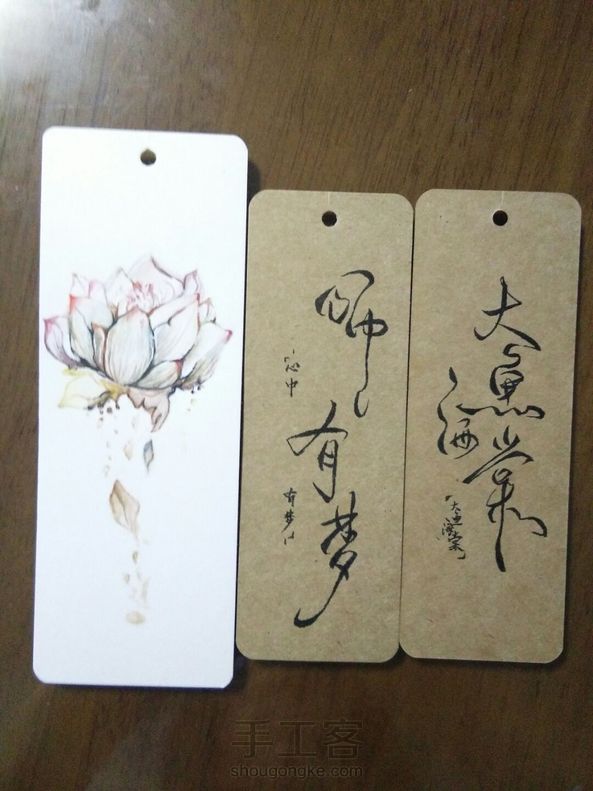 心中
有梦
心中
有梦
大鱼
海棠
「大鱼
海棠」
手工客
shougongke.com